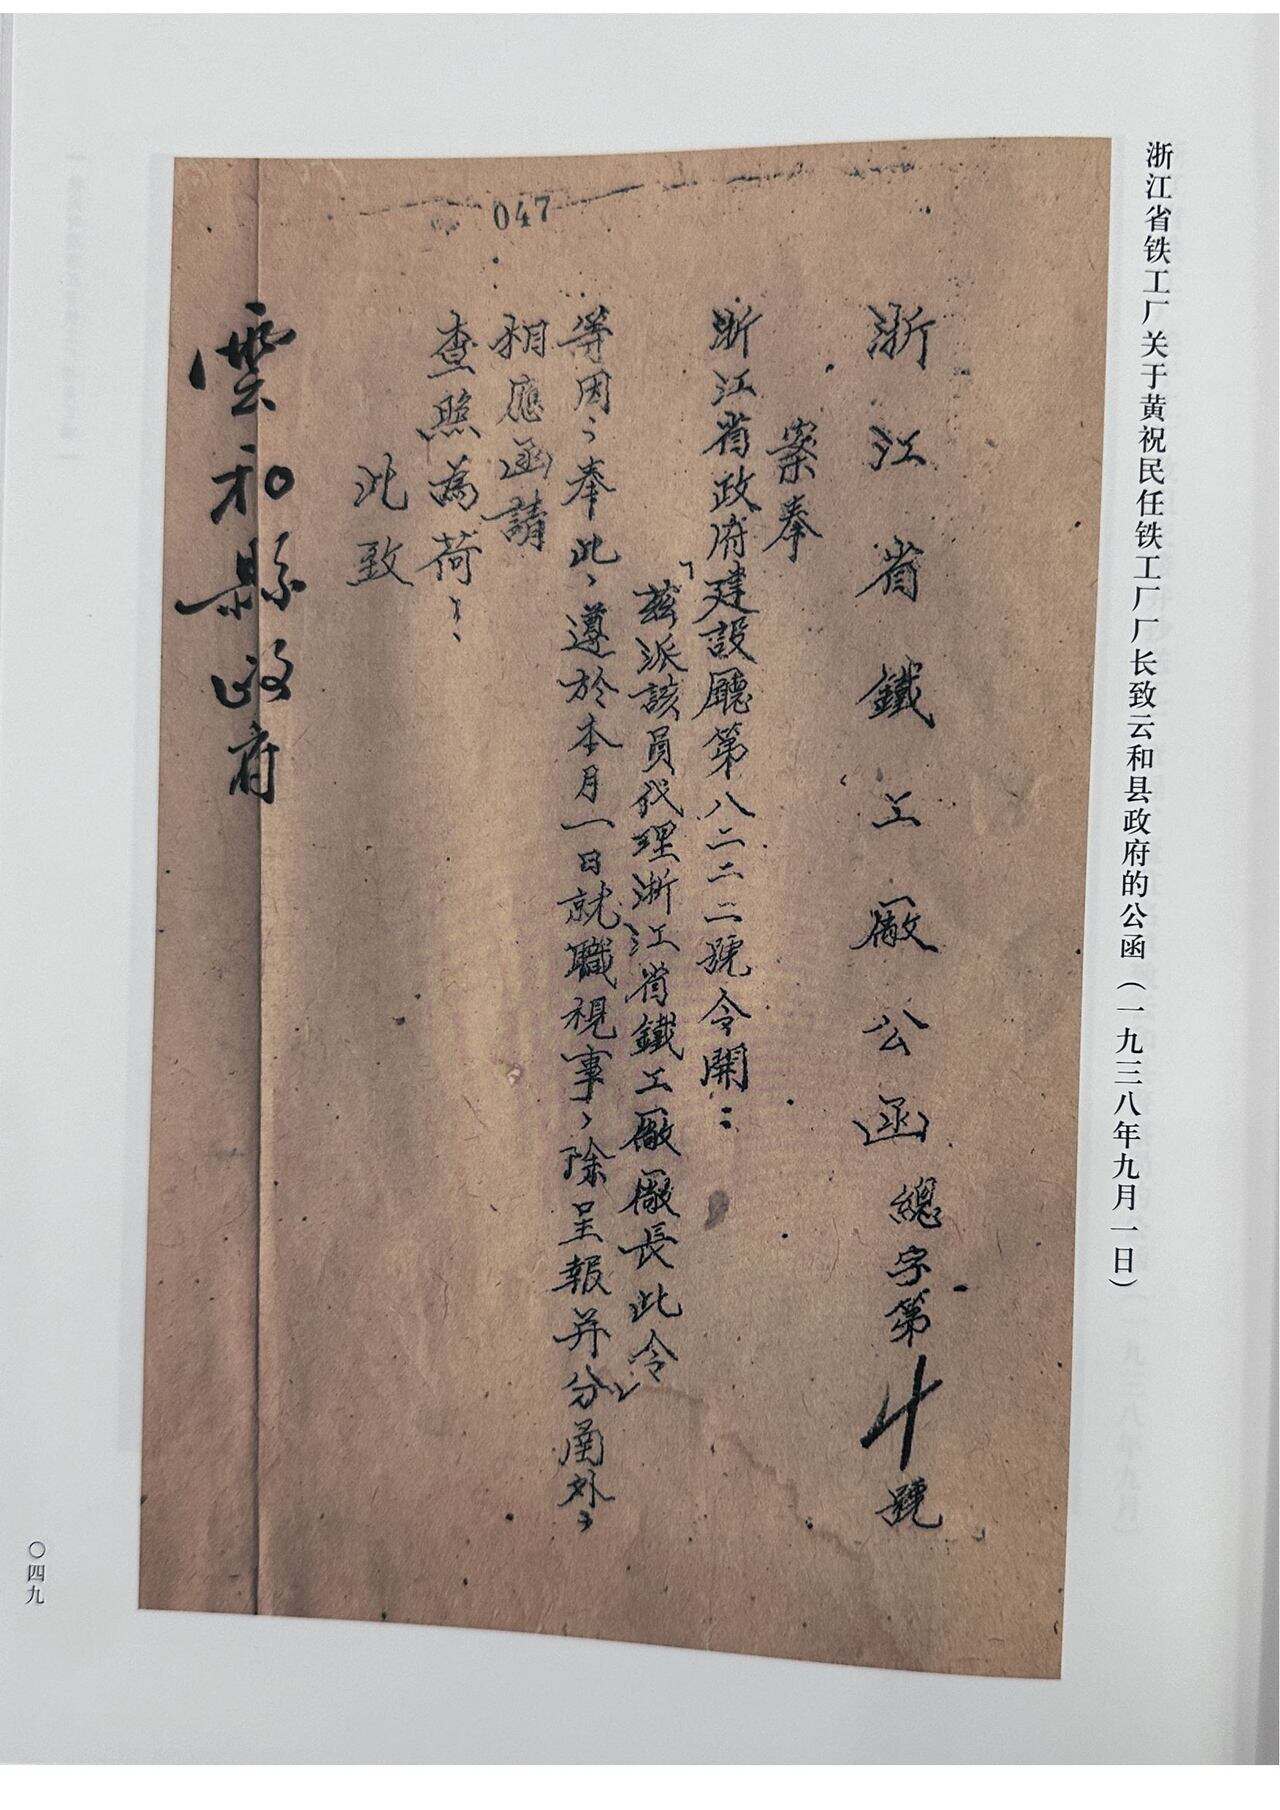 浙江省铁工厂关于黄祝民任铁工厂厂长致云和县政府的公函（一九三八年九月一日）
047
浙江省鐵工廠公函總字第十號
案奉
浙江省政府建設廳第八二二二號令開：
「茲派該員代理浙江省鐵工廠廠長此令」
等因、奉此、遵於本月一日就職視事、除呈報并分函外、
相應函請
查照為荷：
此致
雲和縣政府
〇四九